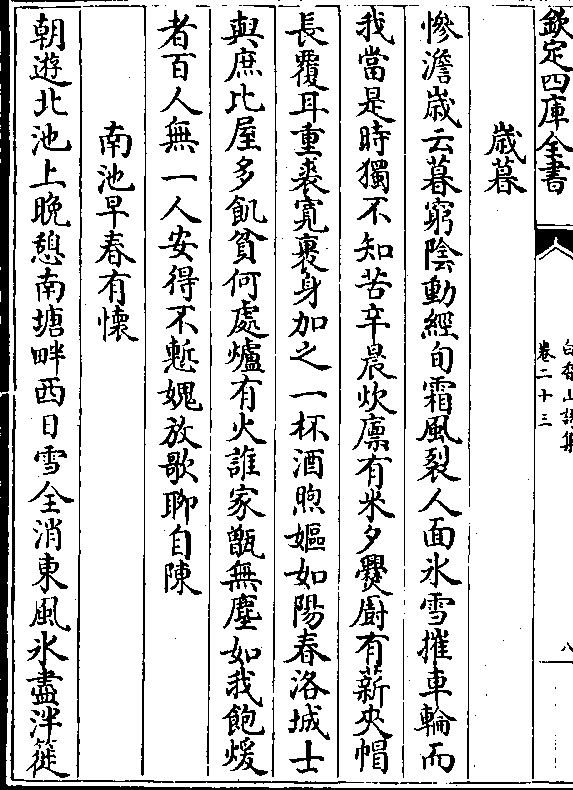 欽定四庫全書
白香山詩集
卷二十三
八
歳暮
慘澹歳云暮窮陰動經旬霜風裂人面氷雪摧車輪而
我當是時獨不知苦辛晨炊廪有米夕爨厨有薪夾帽
長覆耳重裘寛裹身加之一杯酒喣嫗如陽春洛城士
與庶比屋多飢貧何處爐有火誰家甑無塵如我飽煖
者百人無一人安得不慙媿放歌聊自陳
南池早春有懷
朝遊北池上晩憩南塘畔西日雪全消東風氷盡泮簁